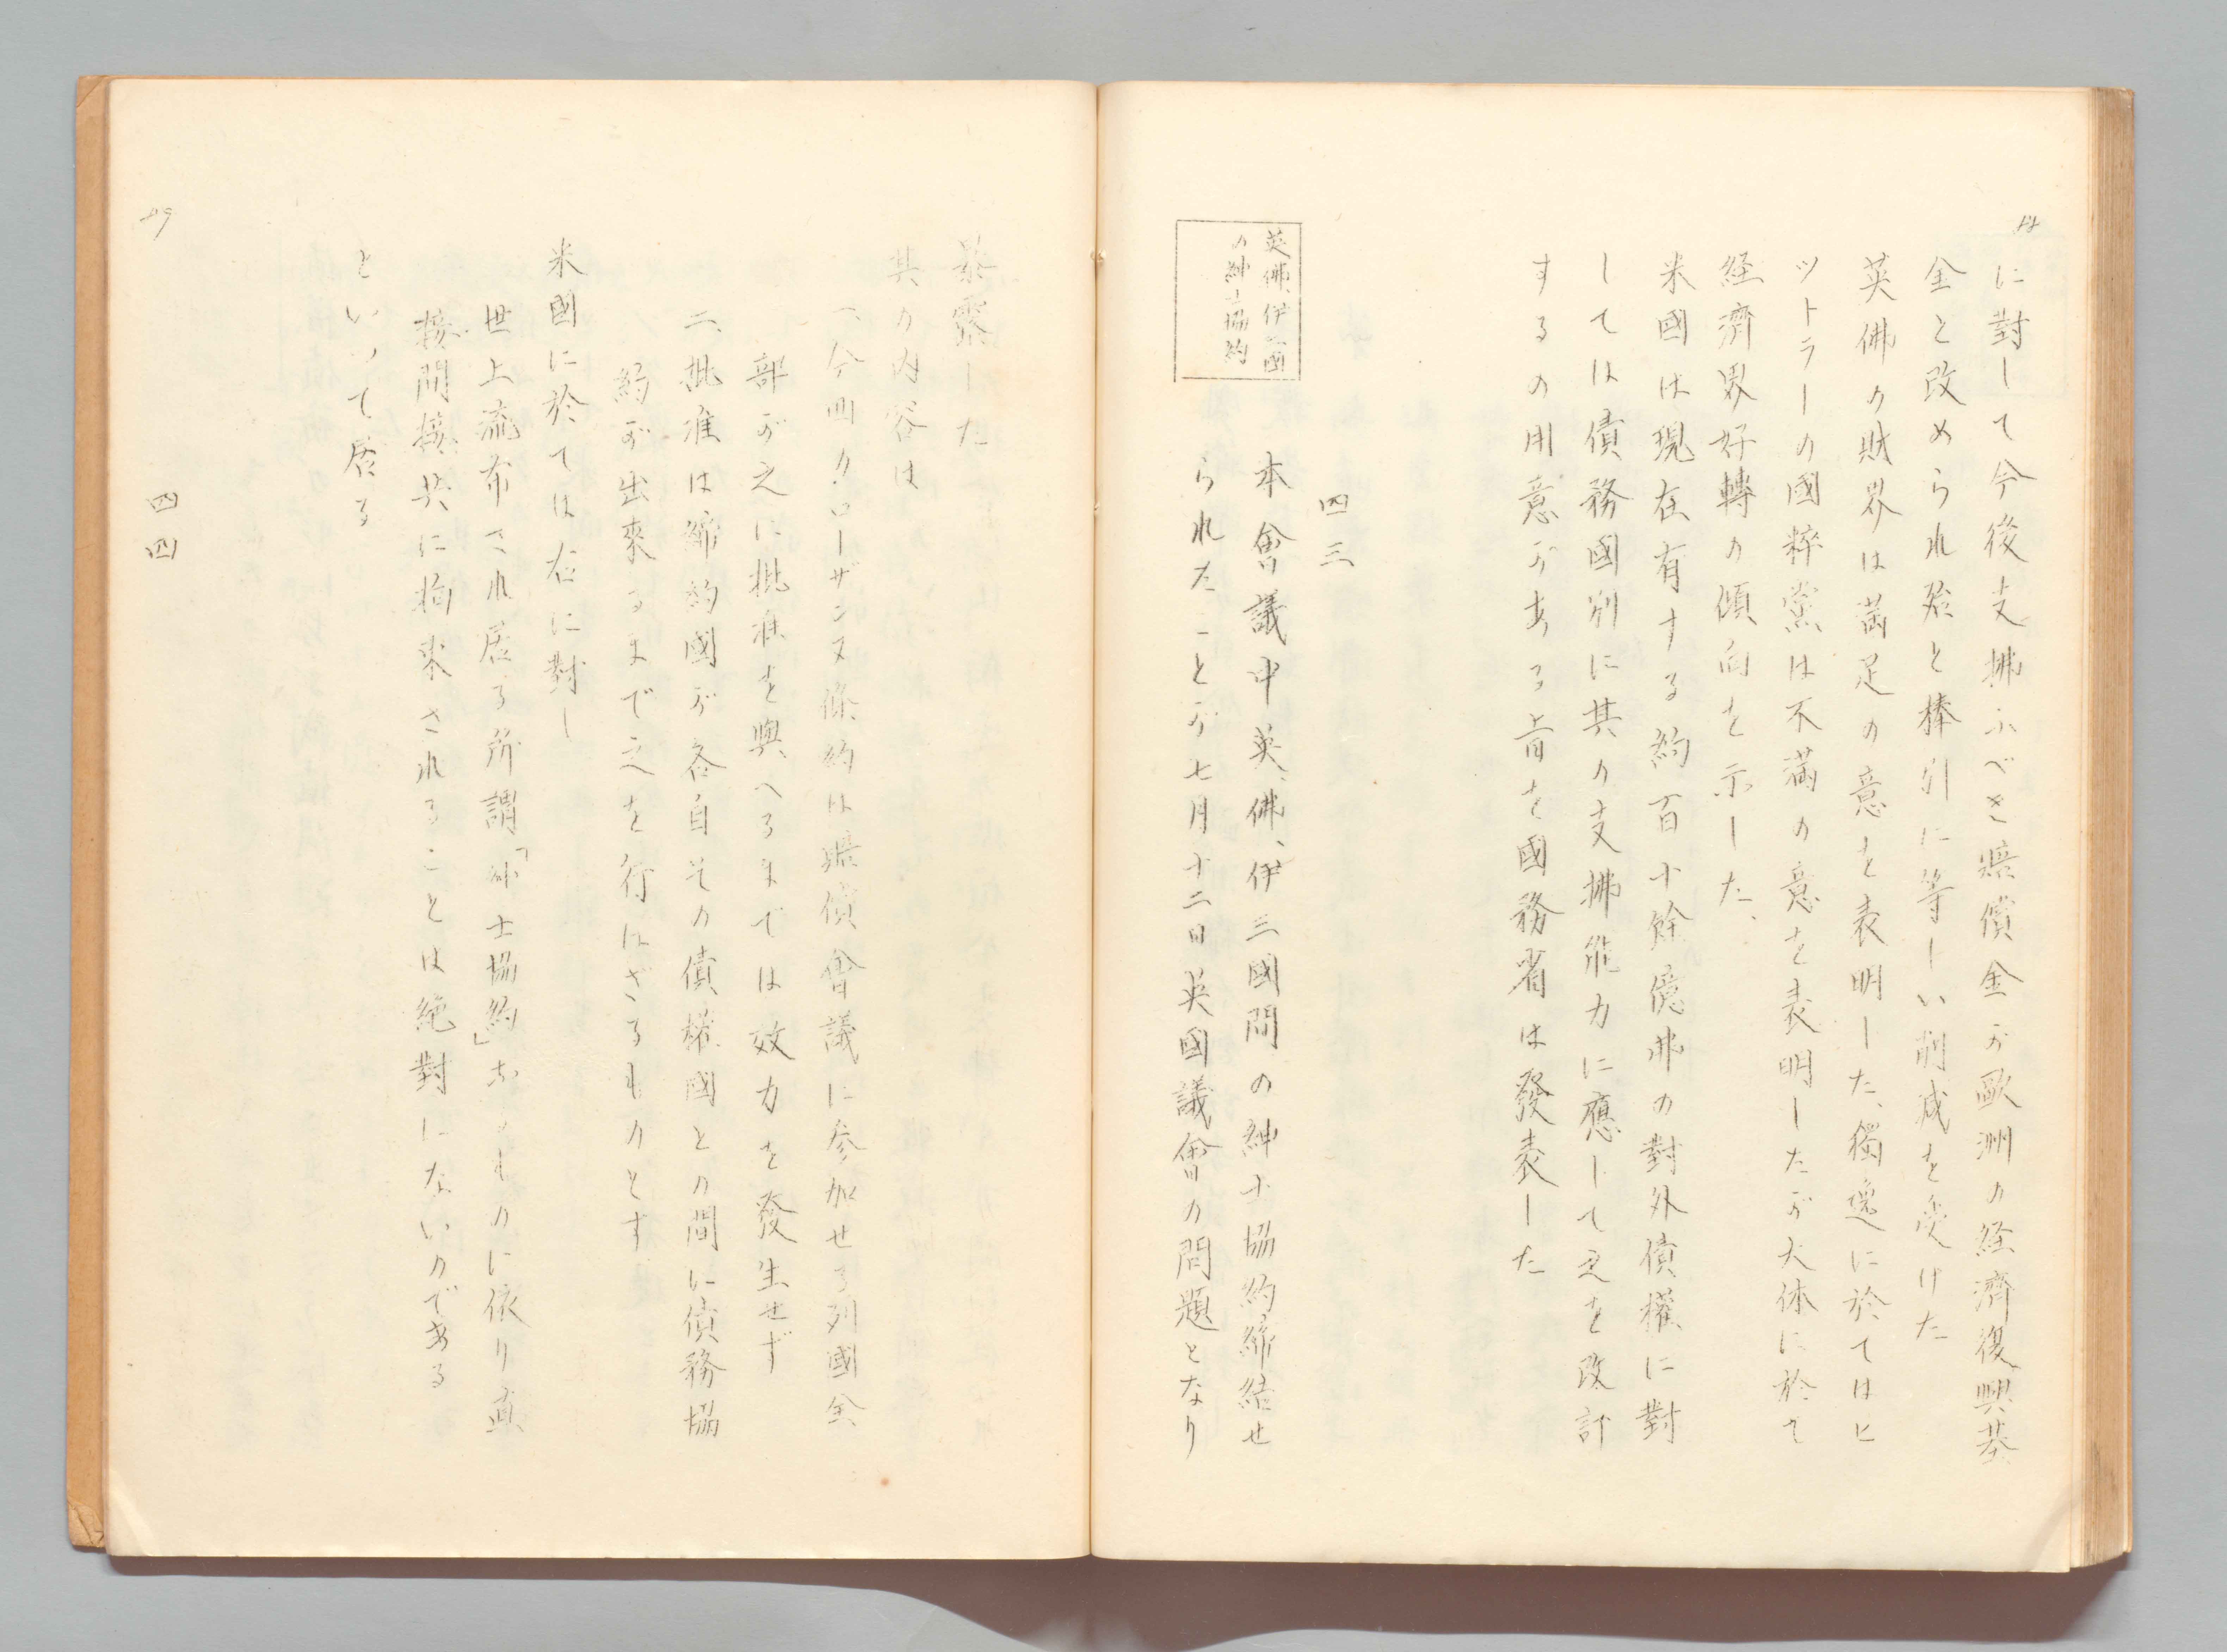 に對して今後支拂ふべき賠償金が歐洲の経濟復興基
金と改められ殆と棒引に等しい削減を受けた
英佛の財界は満足の意を表明した、獨逸に於てはヒ
ツトラーの國粹黨は不満の意を表明したが大体に於て
経濟界好轉の傾向を示した、
米國は現在有する約百十餘億弗の對外債權に對
しては債務國別に其の支拂能力に應して之を改訂
するの用意がある旨を國務省は發表した
四三
英、佛、伊三國
の紳士協約
本會議中英、佛、伊三國間の紳士協約締結せ
られたことが七月十二日英國議會の問題となり
暴露した
其の内容は
一、今回のローザンヌ條約は賠償會議に参加せる列國全
部が之に批准を與へるまでは效力を發生せず
二、批准は締約國が各自その債權國との間に債務協
約が出來るまで之を行はざるものとす
米國に於ては右に對し
世上流布され居る所謂「紳士協約」なるものに依り直
接間接共に拘束されることは絶對にないのである
といつて居る
四四